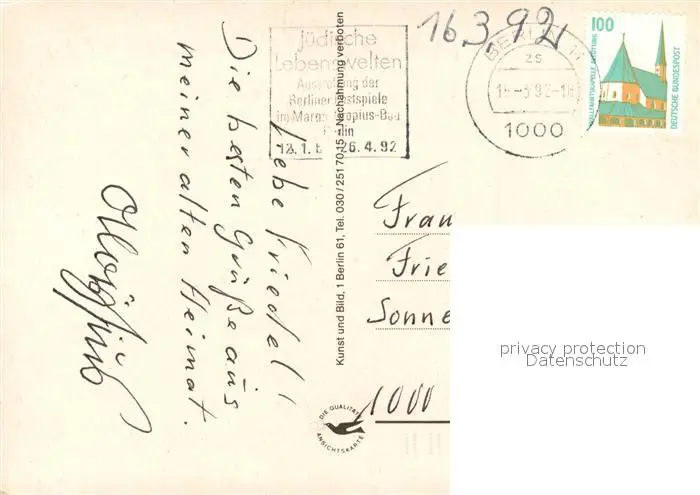 16.3.92
Jüdische
Lebenswelten
Ausstellung der
Berliner Festspiele
im Martin-Gropius-Bau
Berlin
12.1.b 26.4.92
BERLIN 11
zs
-3.92-18
1000
100
WALLFAHRTSKAPELLE ALTÖTTING
DEUTSCHE BUNDESPOST
Liebe Friedel!
Die besten Grüße aus
meiner alten Heimat.
Kunst und Bild, 1 Berlin 61, Tel. 030 / 251 70 15 - Nachahmung verboten
Frau
Frie
Sonne
1000
DIE QUALITÄTS
ANSICHTSKARTE
privacy protection
Datenschutz